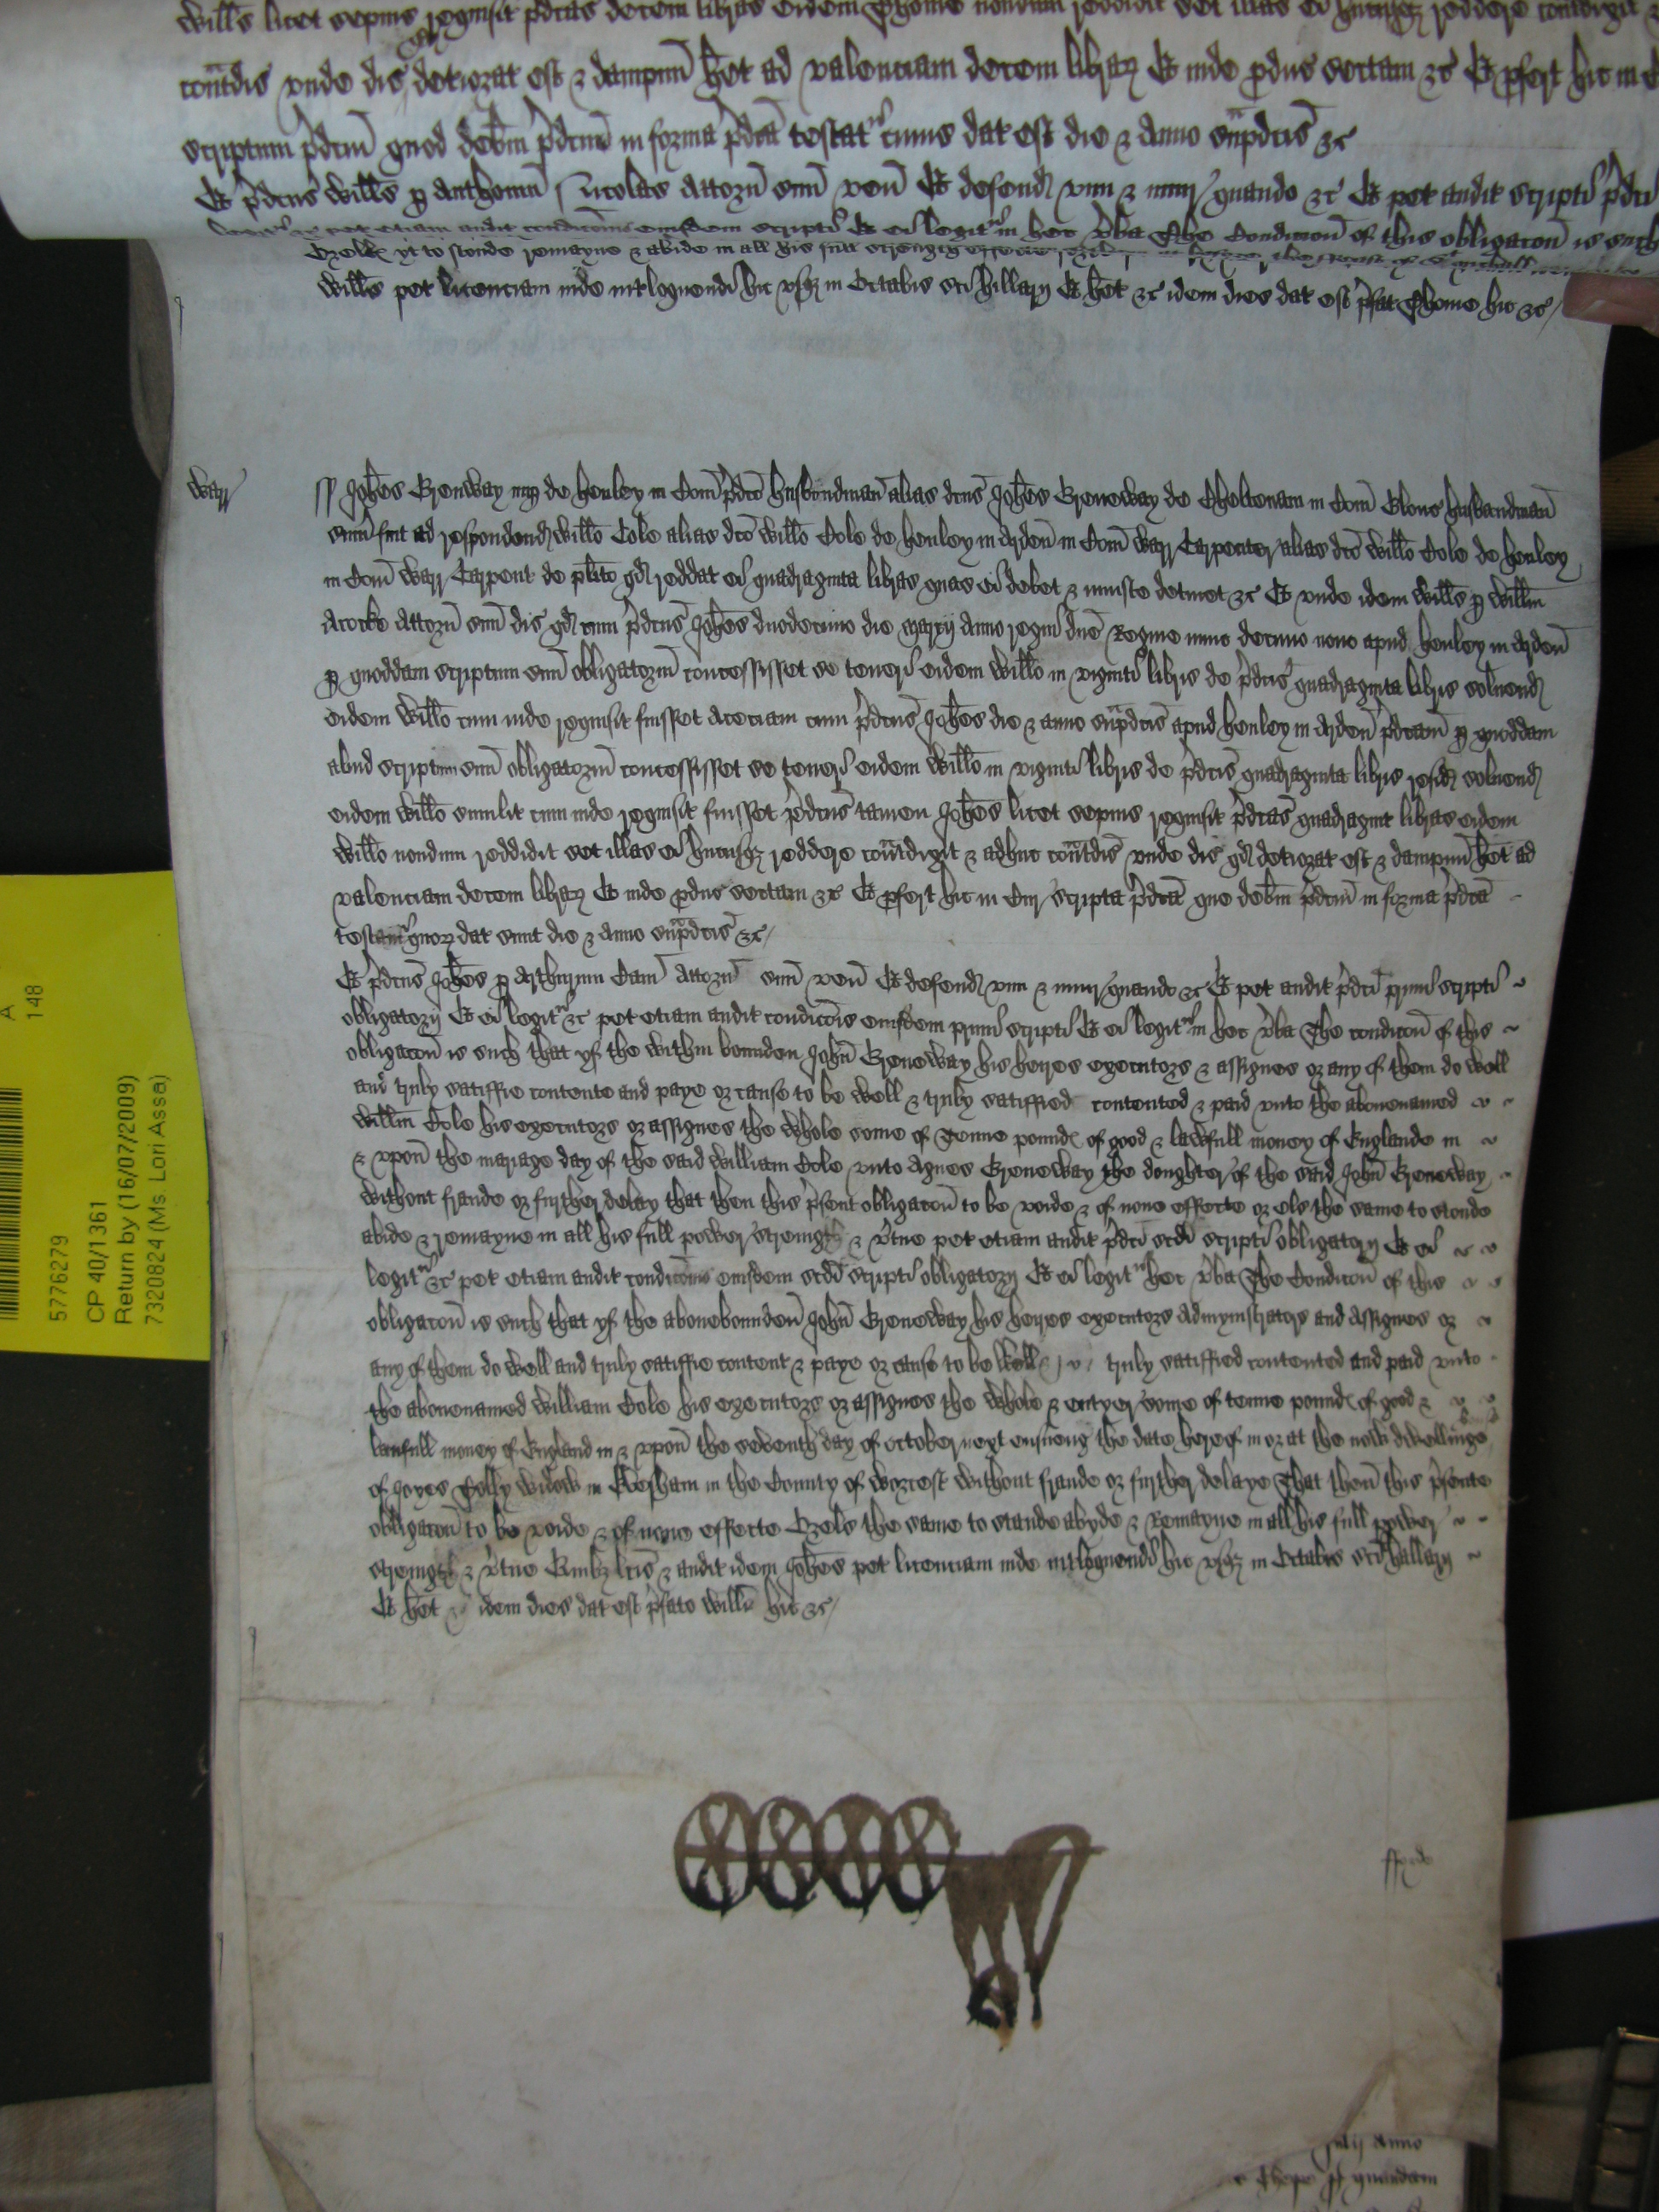 Willūs licet sepius requisit p̄dcas decem libras eidem Thome nondum reddidit set illas ei hucusq reddere contradixit
contrādic vnde dic qd deteriorat est & dampnū het ad valenciam decem librar Et inde p̄duc sectam &c Et p̄fert hic in
scriptum p̄dcm quod debm p̄dcm in forma p̄dca testat cuius dat est die & anno sup̄dcis &c
Et p̄dcus Willūs p Anthoniu Nicolas Attorn suū ven Et defend vim & iniur quando &c Et pet audit scripti p̄dci
&c pet etiam audit condicōnis eiusdem scripti Et ei legit in hec vba The Condicion of this obligacōn is such
Orells yt to stonde remayne & abide in all his full strength
Willūs pet licenciam inde int̄loquendi hic vsq in Octabis sci hillarij Et het &c idem dies dat est p̄fat Thome hic &c
Warr
ss Johes Grenway nup de henley in Com p̄dco husbondman alias dcus Johes Greneway de Cheltenam in Com Glouc husbandman
sum fuit ad respondend Willo Cole alias dco Willo Cole de henley in Arden in Com Warr Carpenter alias dco Willo Cole de henley
in Com Warr Carpent de plito qd reddat ei quadraginta libras quas ei debet & iniuste detinet &c Et vnde idem Willus p Willm
Acocke Attorn suū dic qd cum p̄dcus Johes duodecimo die marcij Anno regni dne Regine nunc decimo nono apud henley in Arden
p quoddam scriptum suū obligatoriū concessisset se teneri eidem Willo in viginti libris de p̄dcis quadraginta libris soluend
eidem Willo cum inde requisit fuisset Acetiam cum p̄dcus Johes die & anno sup̄dcis apud henley in Arden p̄dcam p quoddam
aliud scriptum suū obligatoriū concessisset se teneri eidem Willo in viginti libris de p̄dcis quadraginta libris resid soluend
eidem Willo similit cum inde requisit fuisset p̄dcus tamen Johes licet sepius requisit p̄dcas quadragint libras eidem
Willo nondum reddidit set illas ei hucusq reddere contradixit & adhuc contradic vnde dic qd deteriorat est & dampnū het ad
valenciam decem librar Et inde p̄duc sectam &c Et p̄fert hic in Cur scripta p̄dca que debm p̄dcm in forma p̄dca
testant quor dat sunt die & anno sup̄dcis &c
Et p̄dcus Johes p Arthurum Cam Attorn suū ven Et defend vim & iniur quando &c Et pet audit p̄dci primi scripti
obligatorij Et ei legit &c pet etiam audit condicōis eiusdem primi scripti Et ei legit in hec vba The condicōn of this
obligacōn is such that yf the within bounden John Greneway his heires executors & assignes or any of them do well
and truly satisfie contente and paye or cause to be well & truly satisfied contented & paid vnto the abouenamed
Willm Cole his executors or assignes the whole some of Tenne pounds of good & lawfull money of Englande in
& vpon the mariage day of the said William Cole vnto Agnes Greneway the doughter of the said John Greneway
without fraude or further delay that then this p̄sent obligacōn to be voide & of none effecte or els the same to stonde
abide & remayne in all his full power streingth & vtue pet etiam audit p̄dci scdi scripti obligatorij Et ei
legit &c pet etiam audit condicōnis eiusdem scdi scripti obligatorij Et ei legit hec vba The Condicōn of this
obligacōn is such that yf the abouebounden John Greneway his heires executors Admynistrators and Assignes or
any of them do well and truly satisfie content & paye or cause to be well & truly satisfied contented and paid vnto
the abouenamed William Cole his executors or assignes the whole & entyer some of tenne pounds of good &
laufull money of England in & vpon the seventh day of October next ensueng the date hereof in or at the now dwellinge house
of Joyes Colly widow in Evesham in the County of Worcest without fraude or further delaye That then this p̄sente
obligacōn to be voide & of none effecte Orels the same to stande abyde & Remayne in all his full power
streingth & vtue Quibz lcis & audit idem Johes pet licenciam inde int̄loquendi hic vsq in Octabis sci hillarij
Et het &c idem dies dat est p̄fato Willo hic &c
fforde
Julij Anno
quendam
5776279
A
148
CP 40/1361
Return by (16/07/2009)
7320824 (Ms. Lori Assa)